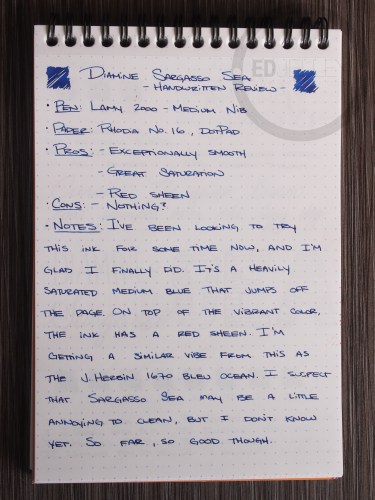 Diamine Sargasso Sea
- Handwritten Review -
· Pen: Lamy 2000 - Medium Nib
· Paper: Rhodia No. 16, DotPad
· Pros: - Exceptionally smooth
- Great Saturation
- Red sheen
· Cons: - Nothing?
· Notes: I've been looking to try
this ink for some time now, and I'm
glad I finally did. It's a heavily
saturated medium blue that jumps off
the page. On top of the vibrant color,
the ink has a red sheen. I'm
getting a similar vibe from this as
the J. Herbin 1670 Bleu Ocean. I suspect
that Sargasso Sea may be a little
annoying to clean, but I don't know
yet. So far, so good though.
ED